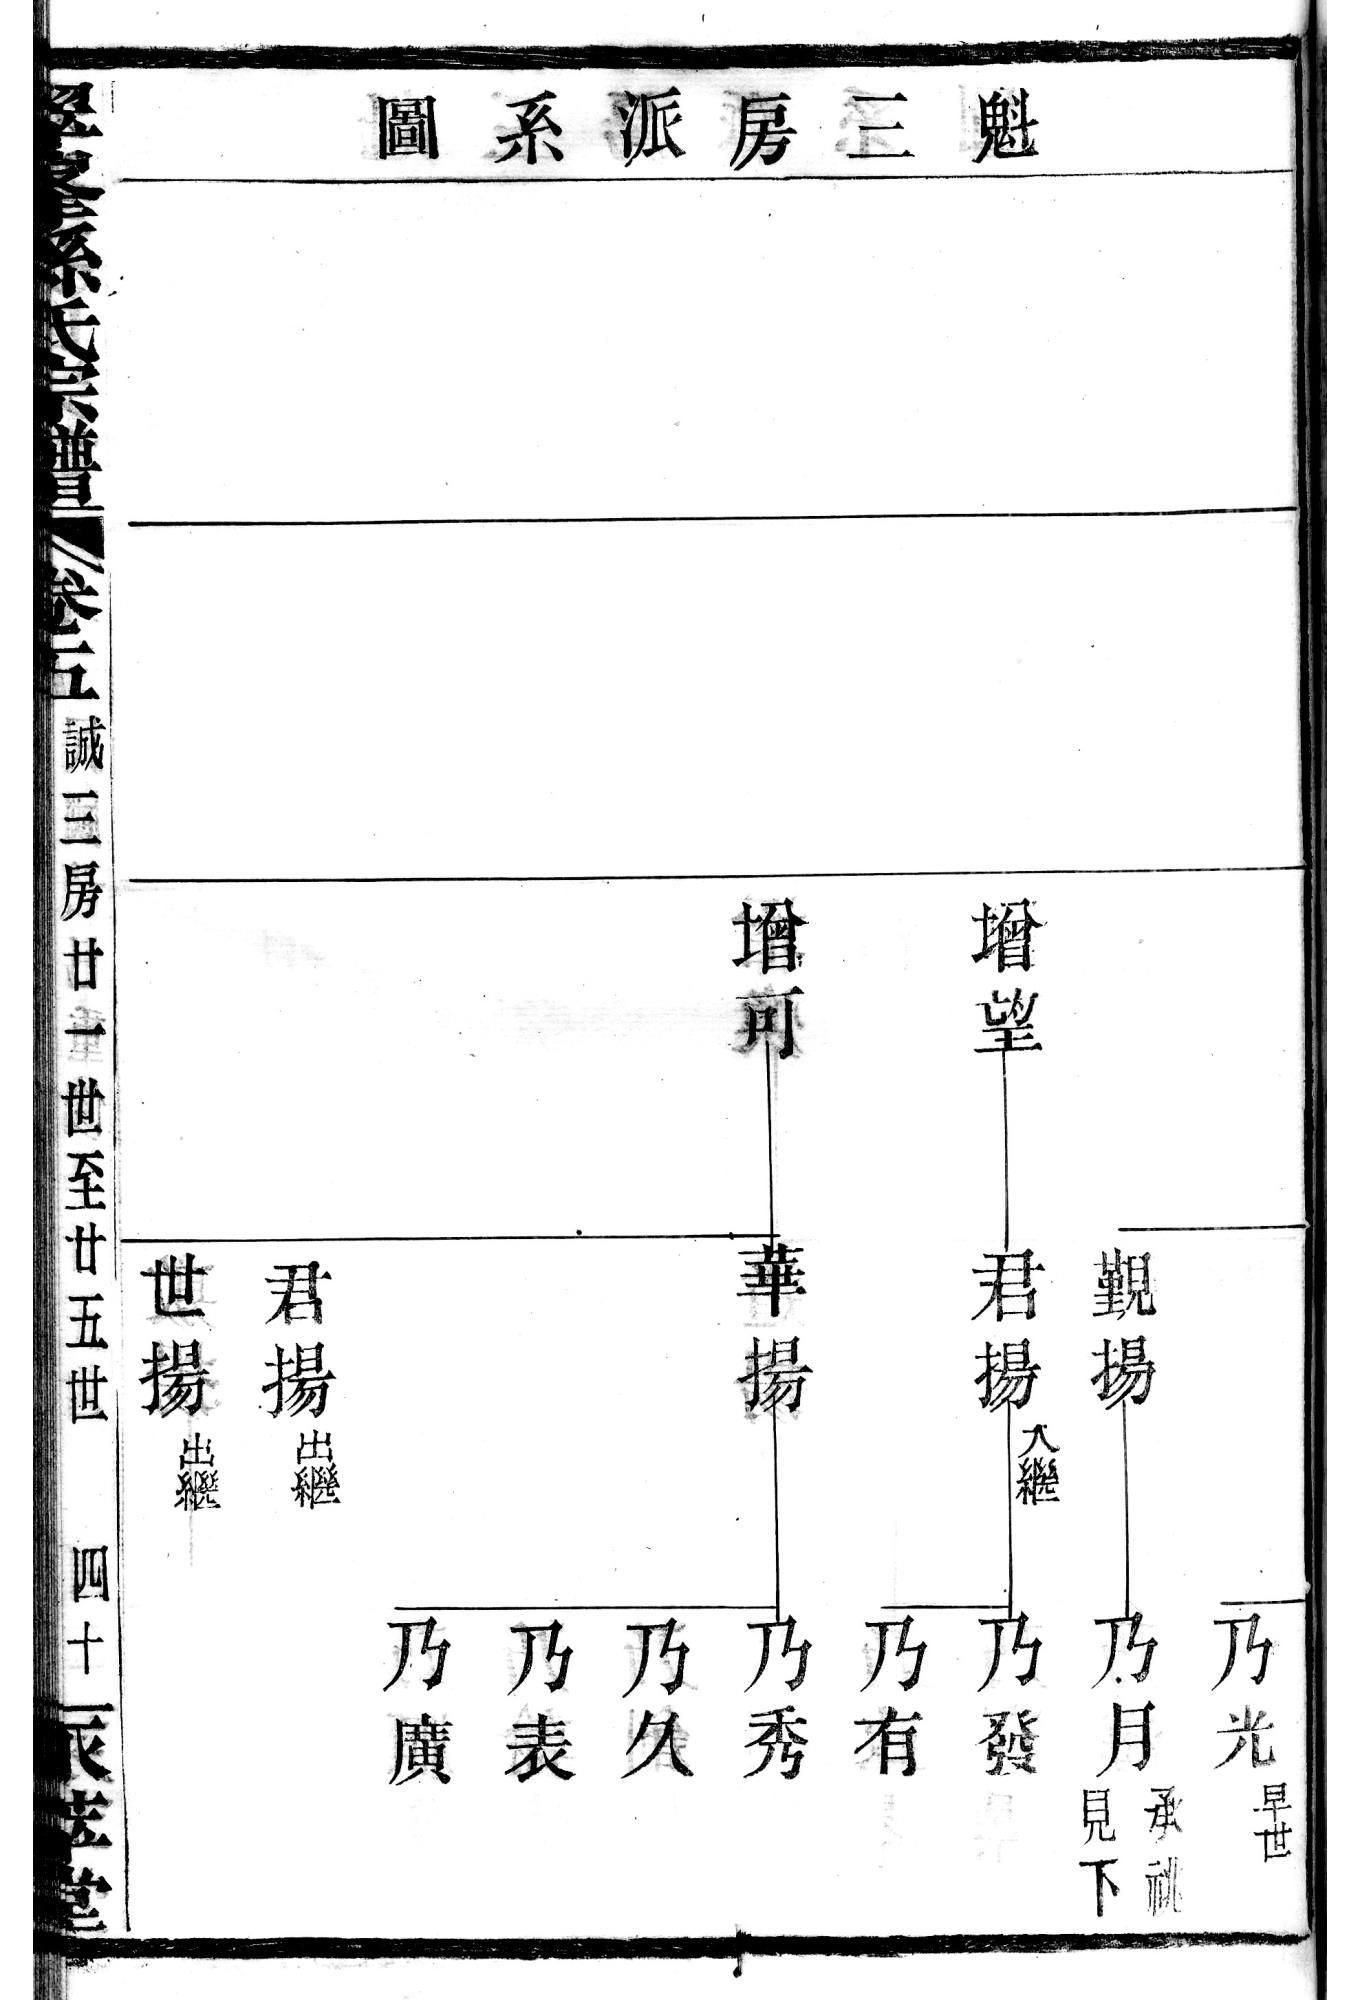 魁三房派系圖
增望
增可
覲揚
君揚 入繼
華揚
君揚 出繼
世揚 出繼
乃光 早世
乃月 承祧 見下
乃發
乃有
乃秀
乃久
乃表
乃廣
孫氏宗譜
卷五
誠三房廿一世至廿五世
四十一
堂